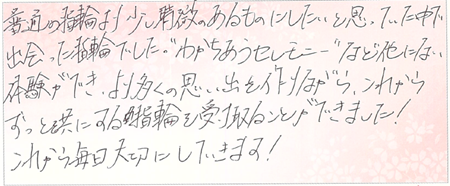 普通の指輪より少し特徴のあるものにしたいと思っていた中で
出会った指輪でした。"わかちあうセレモニー"など他にない
体験ができ、より多くの思い出を作りながら、これから
ずっと共にする指輪を受け取ることができました!
これから毎日大切にしていきます!